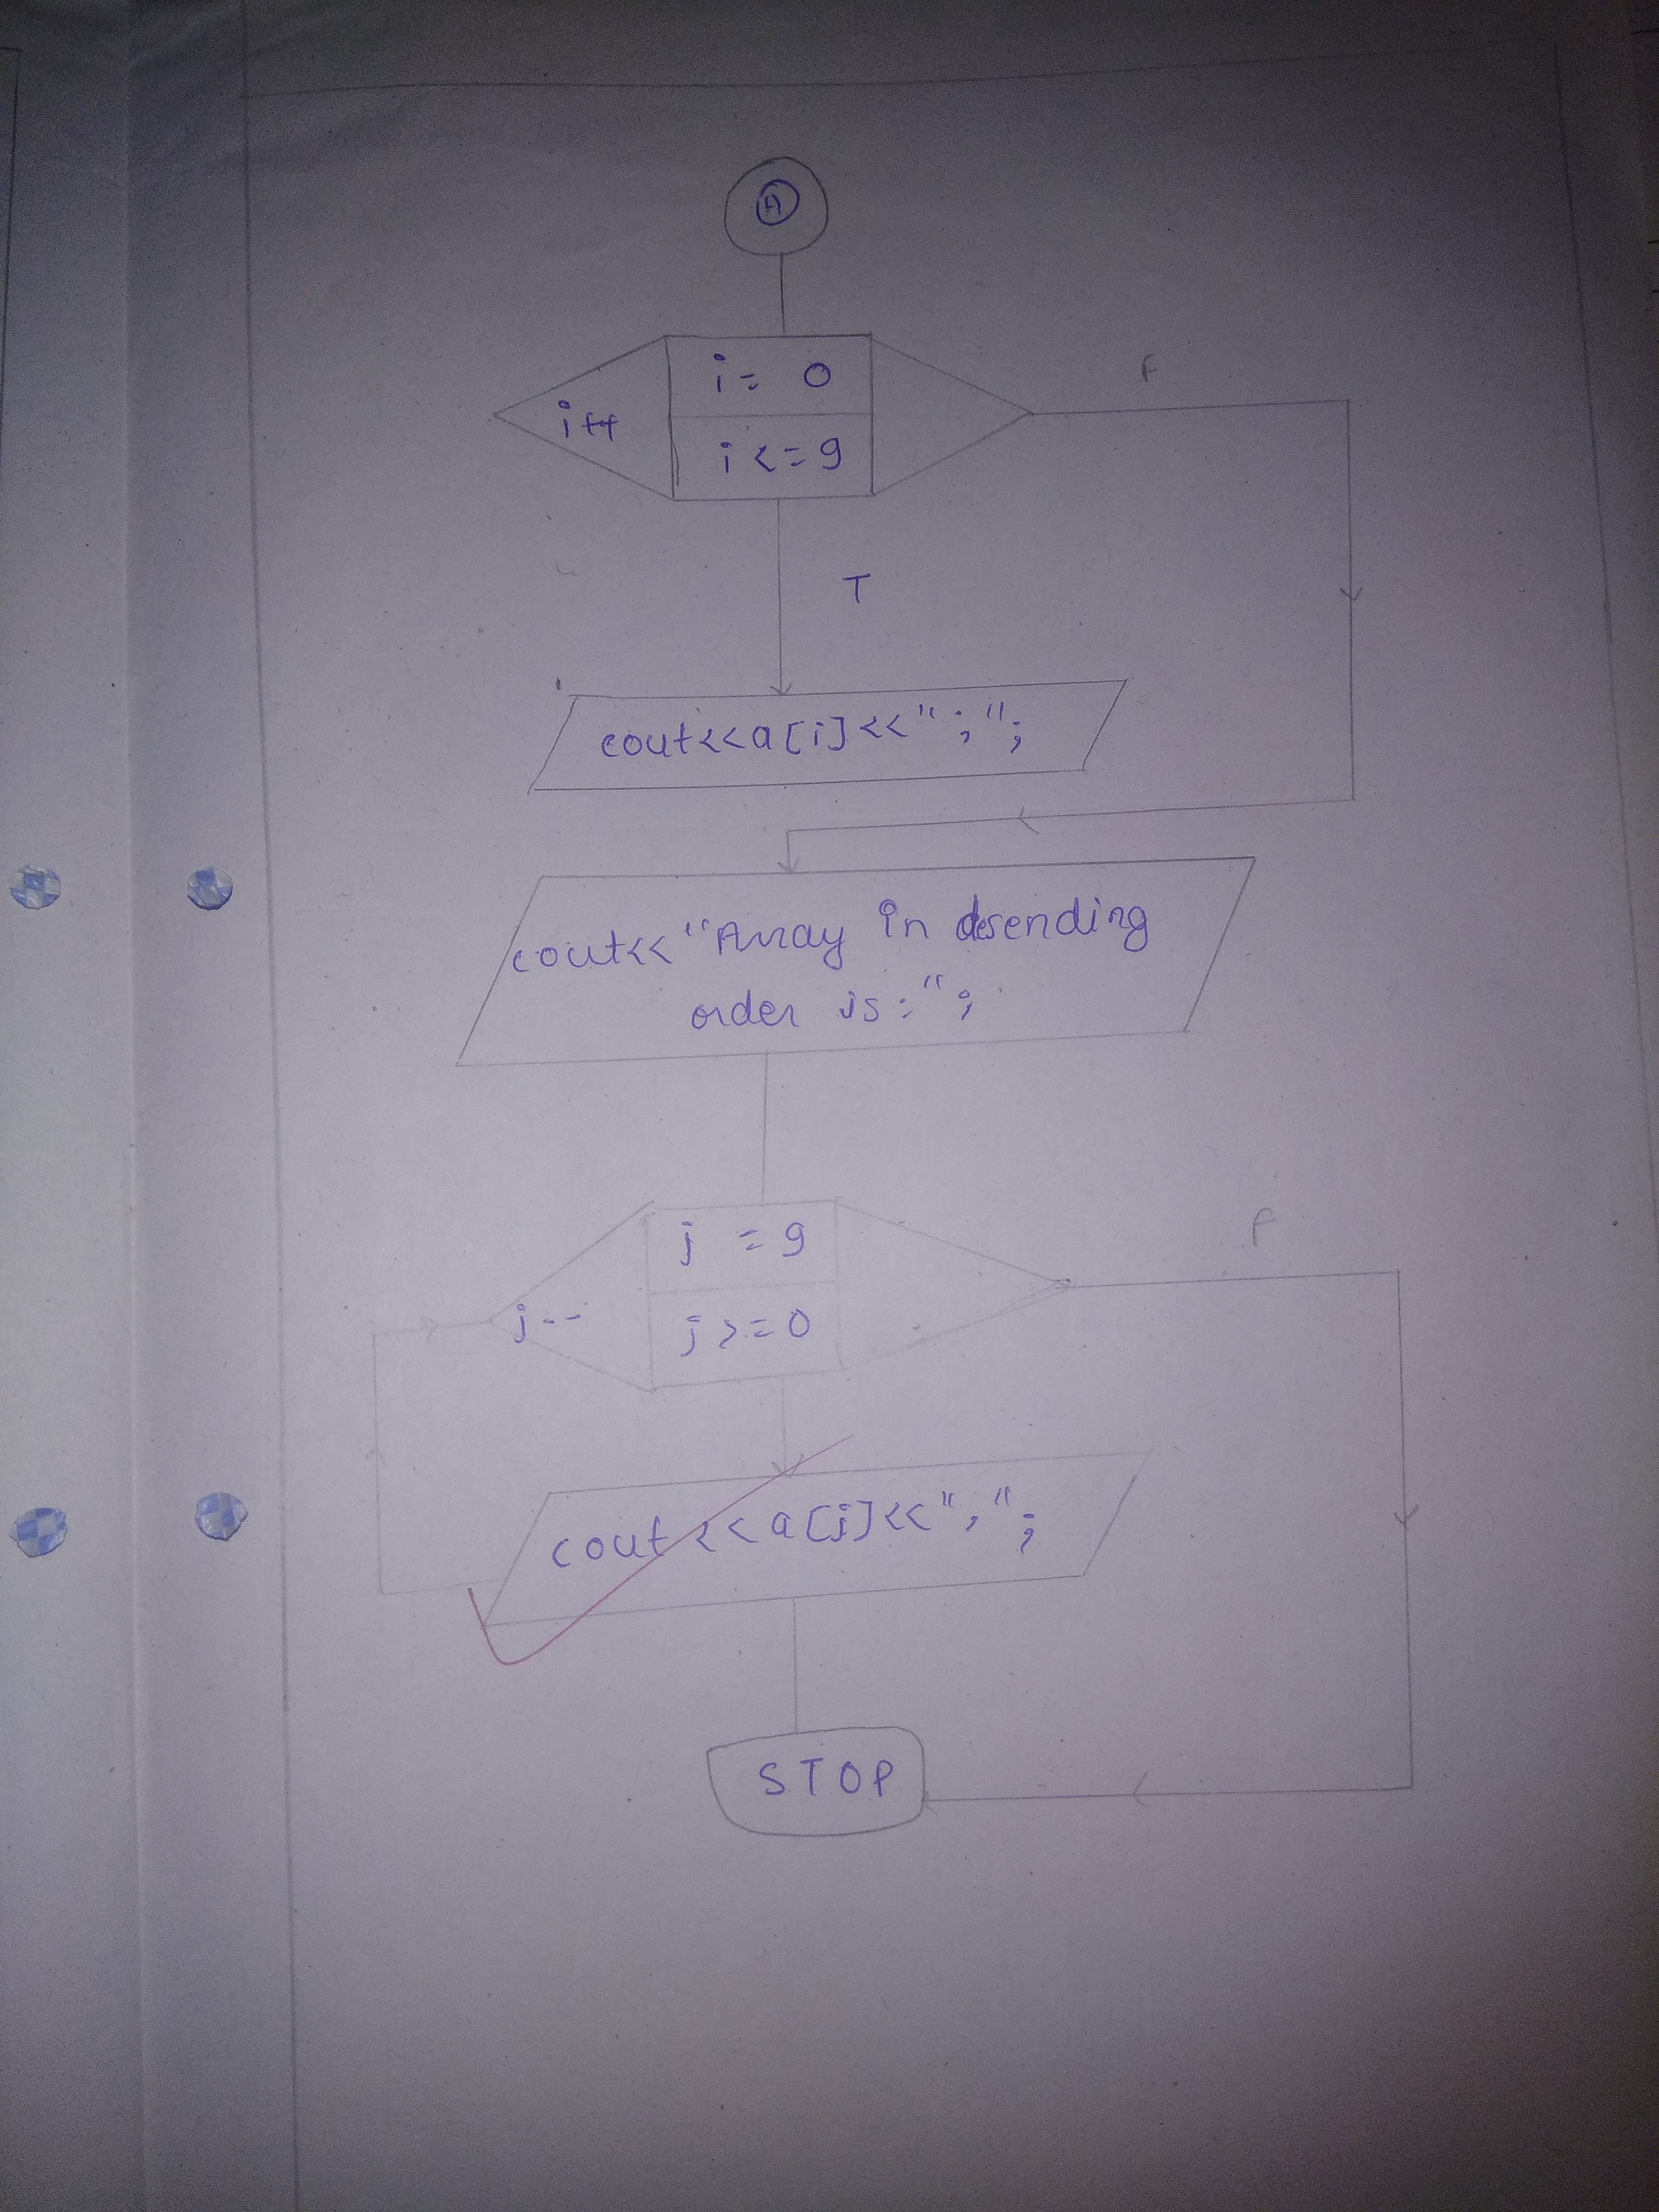 A
i = 0
i++
i <= 9
F
T
cout<<a[i]<<";";
cout<<"Array in desending
order is:";
j = 9
j--
j >= 0
F
cout<<a[j]<<",";
STOP